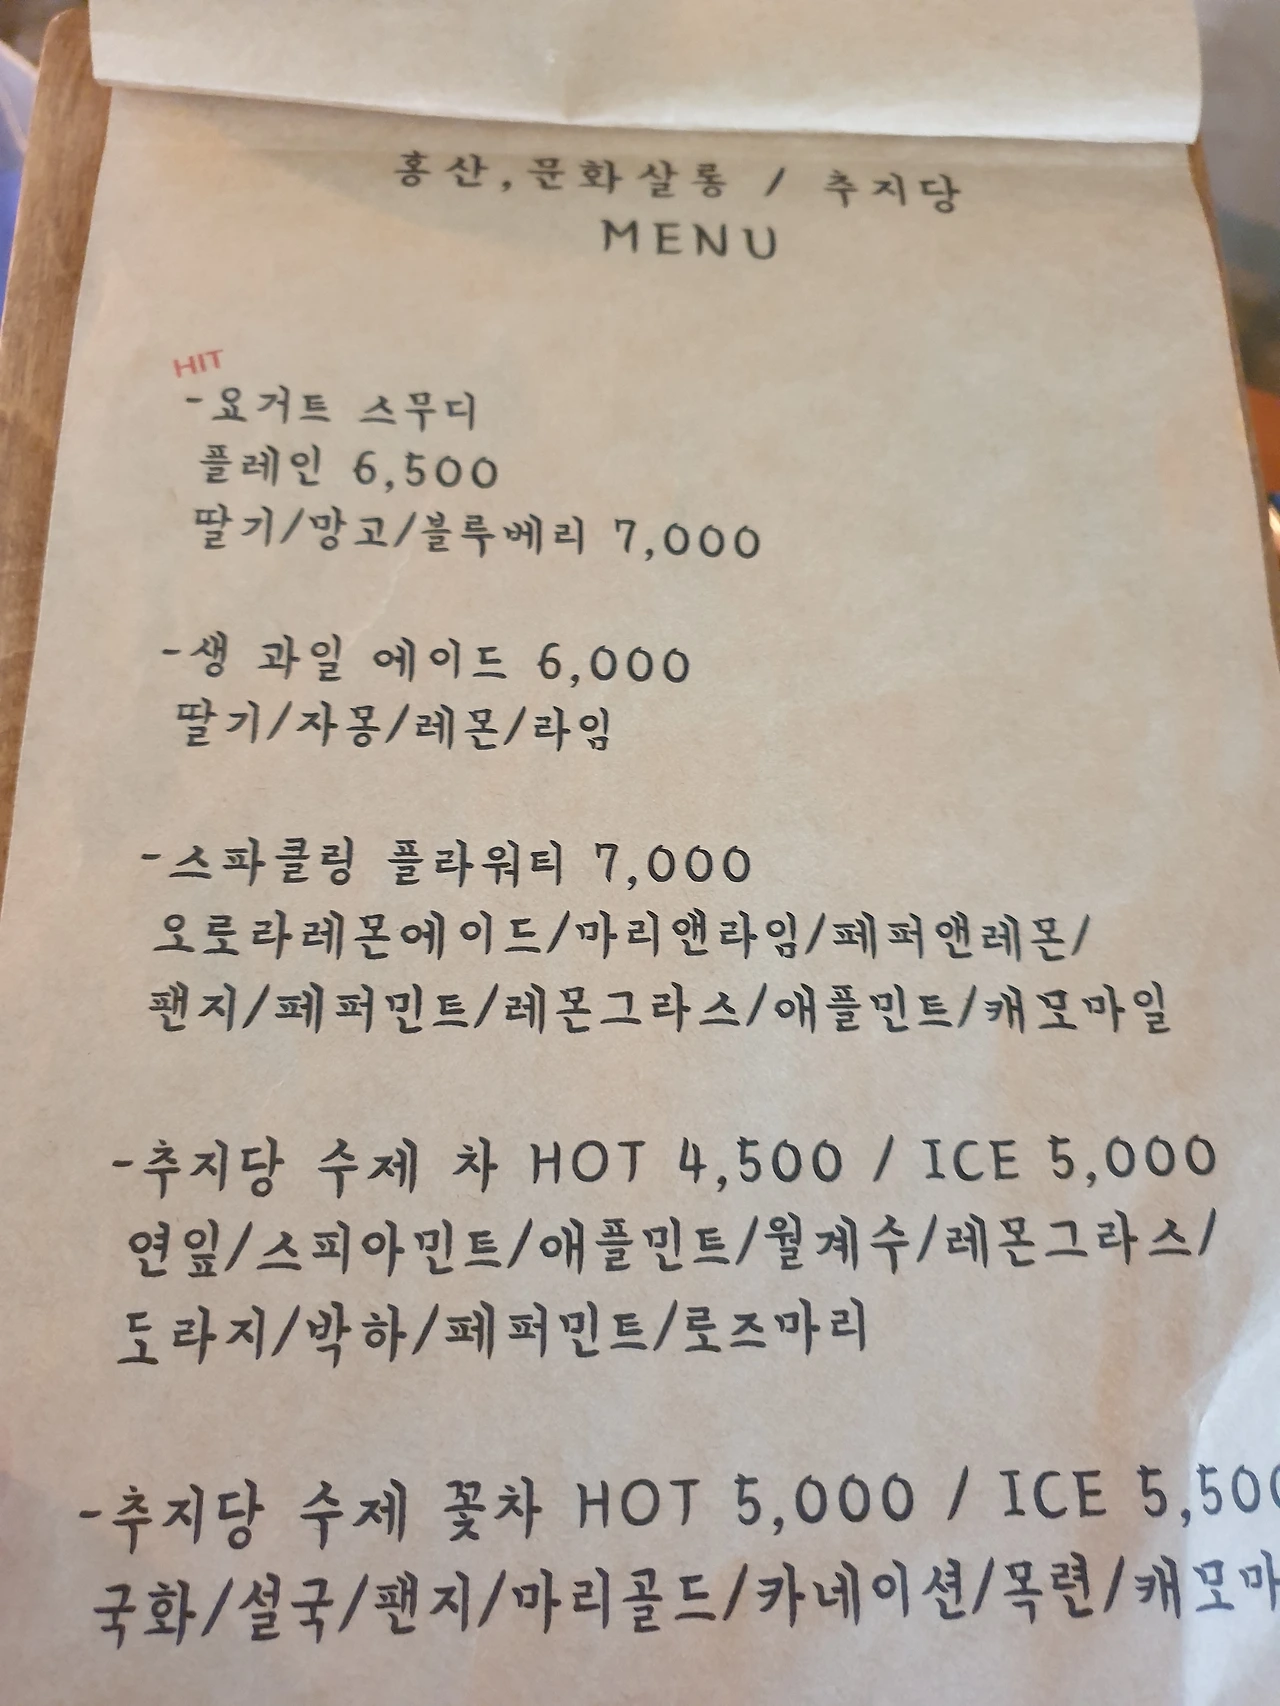 홍산,문화살롱 / 추지당
MENU
HIT
-요거트 스무디
플레인 6,500
딸기/망고/블루베리 7,000
-생 과일 에이드 6,000
딸기/자몽/레몬/라임
-스파클링 플라워티 7,000
오로라레몬에이드/마리앤라임/페퍼앤레몬/
팬지/페퍼민트/레몬그라스/애플민트/캐모마일
-추지당 수제 차 HOT 4,500 / ICE 5,000
연잎/스피아민트/애플민트/월계수/레몬그라스/
도라지/박하/페퍼민트/로즈마리
-추지당 수제 꽃차 HOT 5,000 / ICE 5,500
국화/설국/팬지/마리골드/카네이션/목련/캐모마